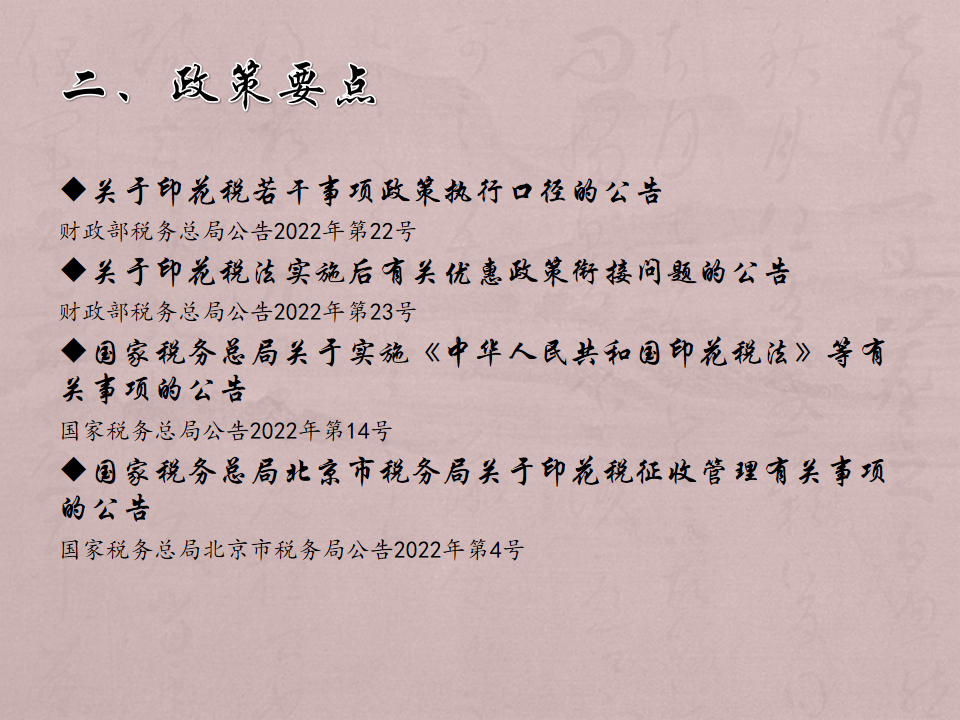 二、政策要点
◆关于印花税若干事项政策执行口径的公告
财政部税务总局公告2022年第22号
◆关于印花税法实施后有关优惠政策衔接问题的公告
财政部税务总局公告2022年第23号
◆国家税务总局关于实施《中华人民共和国印花税法》等有
关事项的公告
国家税务总局公告2022年第14号
◆国家税务总局北京市税务局关于印花税征收管理有关事项
的公告
国家税务总局北京市税务局公告2022年第4号